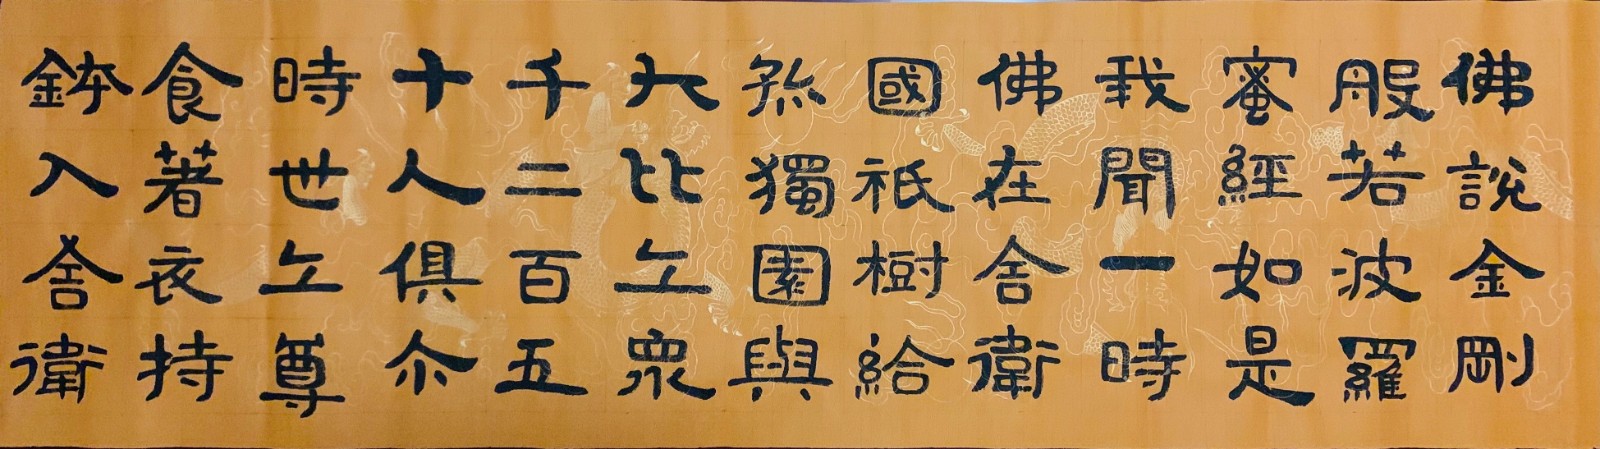 佛說金剛
般若波羅
蜜經如是
我聞一時
佛在舍衛
國祇樹給
孤獨園與
大比丘眾
千二百五
十人俱尒
時世丘尊
食著衣持
鉢入舍衛